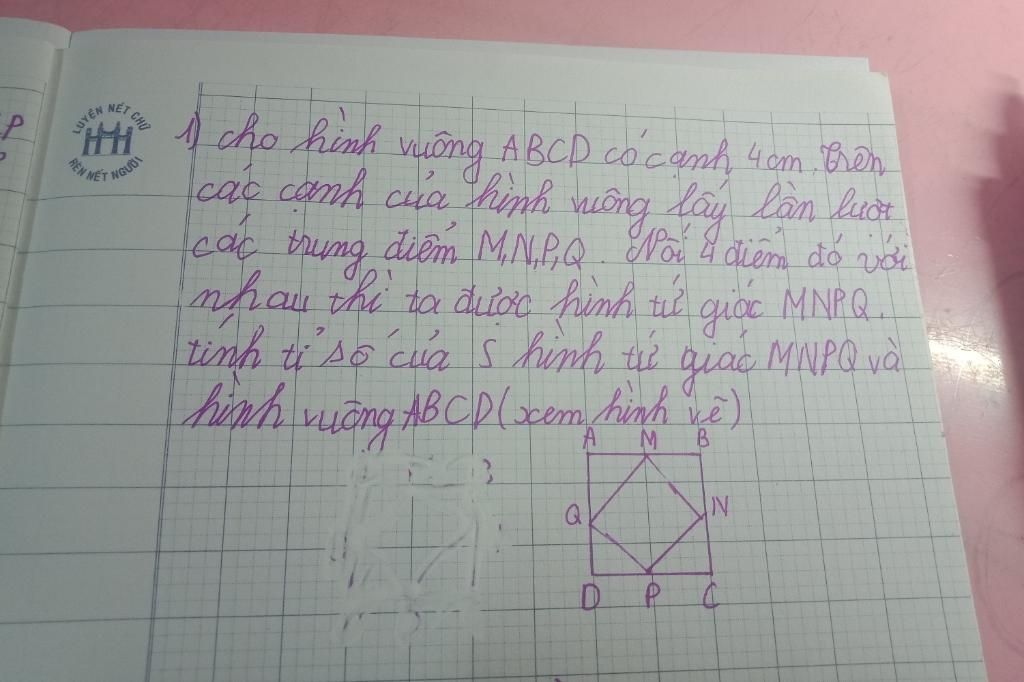 P
LUYỆN NẾT CHỮ
RÈN NẾT NGƯỜI
1) cho hình vuông ABCD có cạnh 4cm. Trên
các cạnh của hình vuông lấy lần lượt
các trung điểm M,N,P,Q. Nối 4 điểm đó với
nhau thì ta được hình tứ giác MNPQ.
tính tỉ số của S hình tứ giác MNPQ và
hình vuông ABCD (xem hình vẽ)
A M B
Q N
D P C